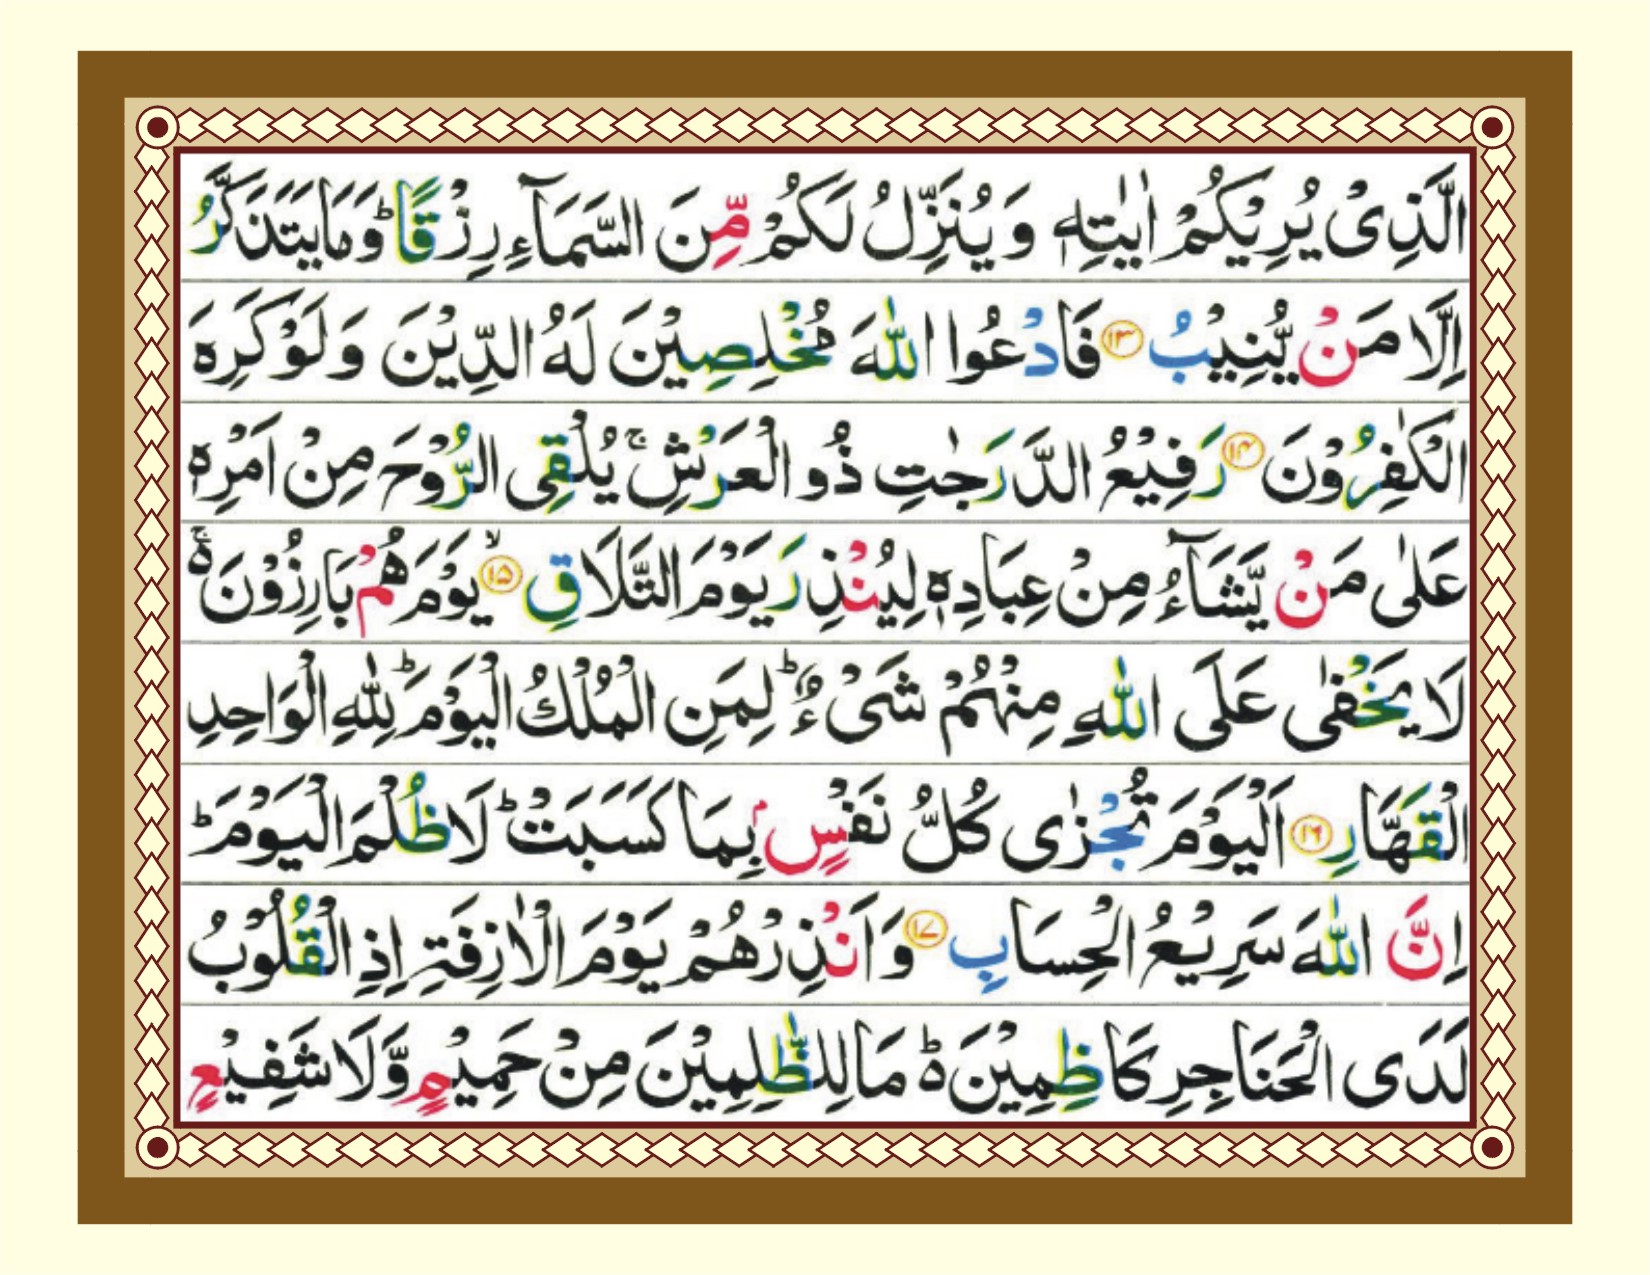 الَّذِیْ یُرِیْكُمْ اٰیٰتِهٖ وَ یُنَزِّلُ لَكُمْ مِّنَ السَّمَآءِ رِزْقًا ؕ وَمَا یَتَذَكَّرُ
اِلَّا مَنْ یُّنِیْبُ ۝۱۳ فَادْعُوا اللّٰهَ مُخْلِصِیْنَ لَهُ الدِّیْنَ وَ لَوْ كَرِهَ
الْكٰفِرُوْنَ ۝۱۴ رَفِیْعُ الدَّرَجٰتِ ذُو الْعَرْشِ ۚ یُلْقِی الرُّوْحَ مِنْ اَمْرِهٖ
عَلٰی مَنْ یَّشَآءُ مِنْ عِبَادِهٖ لِیُنْذِرَ یَوْمَ التَّلَاقِ ۝۱۵ ۙ یَوْمَ هُمْ بَارِزُوْنَ ۚ۬
لَا یَخْفٰی عَلَی اللّٰهِ مِنْهُمْ شَیْءٌ ؕ لِمَنِ الْمُلْكُ الْیَوْمَ ؕ لِلّٰهِ الْوَاحِدِ
الْقَهَّارِ ۝۱۶ اَلْیَوْمَ تُجْزٰی كُلُّ نَفْسٍۭ بِمَا كَسَبَتْ ؕ لَا ظُلْمَ الْیَوْمَ ؕ
اِنَّ اللّٰهَ سَرِیْعُ الْحِسَابِ ۝۱۷ وَ اَنْذِرْهُمْ یَوْمَ الْاٰزِفَةِ اِذِ الْقُلُوْبُ
لَدَی الْحَنَاجِرِ كَاظِمِیْنَ ؕ۬ مَا لِلظّٰلِمِیْنَ مِنْ حَمِیْمٍ وَّ لَا شَفِیْعٍ